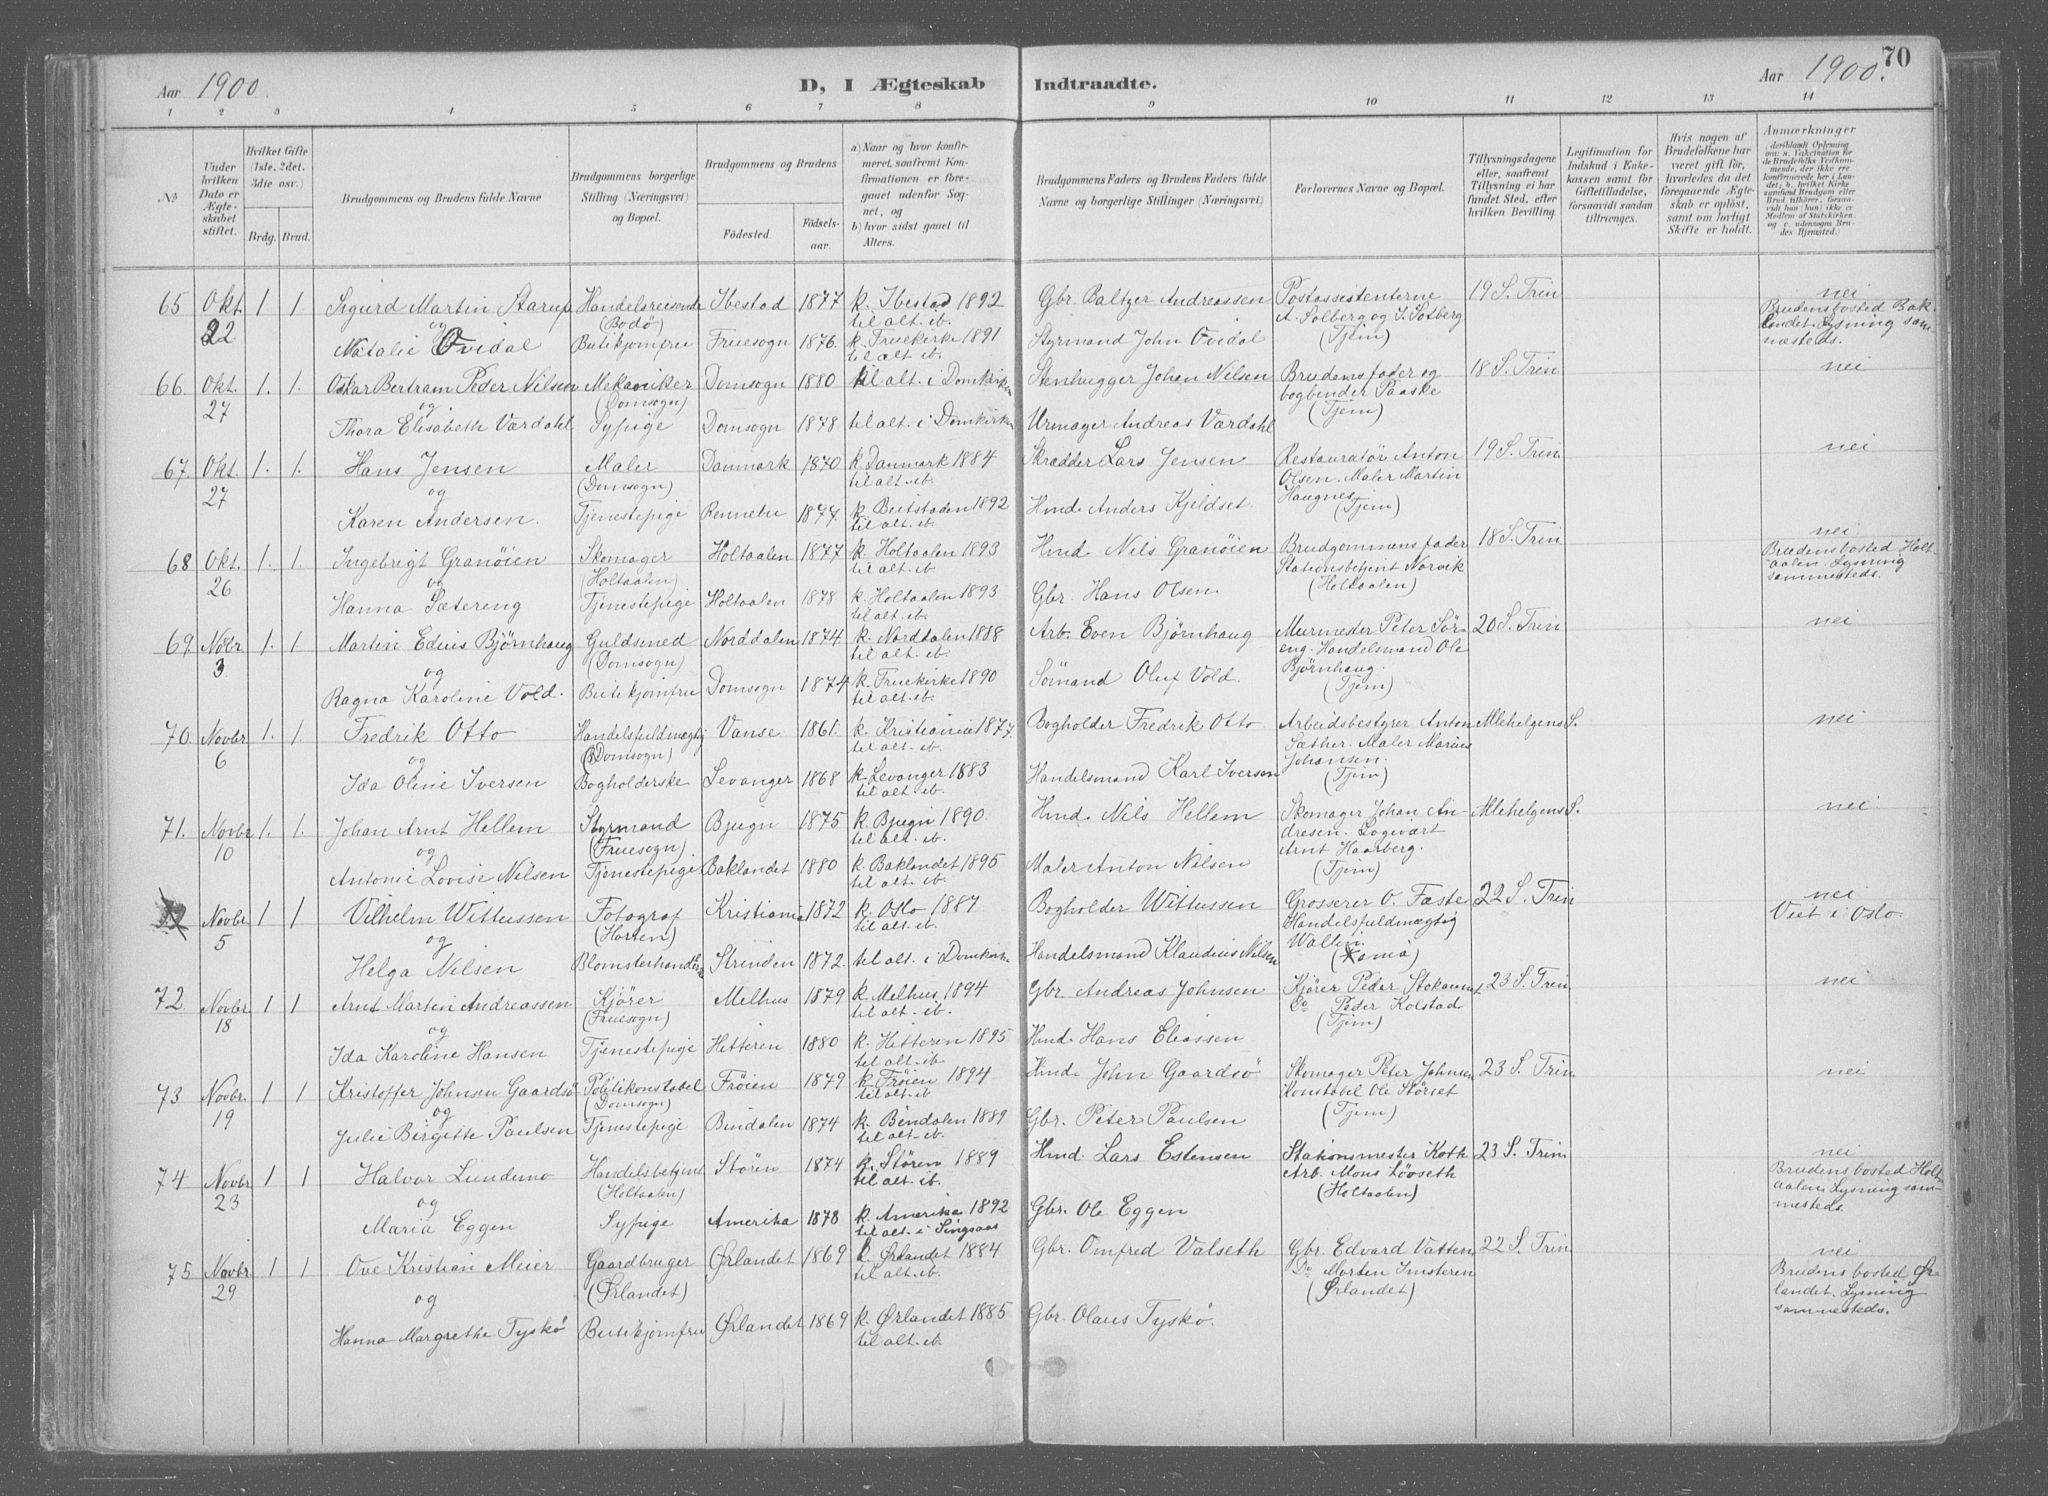 Aar 1900.
D, I Ægteskab Indtraadte.
Aar 1900. 70
1 2 3 4 5 6 7 8 9 10 11 12 13 14
№
Under hvilken Dato er Ægteskabet stiftet.
Hvilket Gifte (1ste, 2det, 3die osv.)
Brdg. Brud.
Brudgommens og Brudens fulde Navne
Brudgommens borgerlige Stilling (Næringsvei) og Bopæl.
Brudgommens og Brudens
Fødested. Fødselsaar.
a) Naar og hvor konfirmeret, saafremt Konfirmationen er foregaaet udenfor Sognet, og
b) hvor sidst gaaet til Alters.
Brudgommens Faders og Brudens Faders fulde Navne og borgerlige Stillinger (Næringsvei)
Forlovernes Navne og Bopæl.
Tillysningsdagene eller, saafremt Tillysning ei har fundet Sted, efter hvilken Bevilling.
Legitimation for Indskud i Enkekassen samt for Giftetilladelse, forsaavidt saadan tiltrænges.
Hvis nogen af Brudefolkene har været gift før, hvorledes da det foregaaende Ægteskab er opløst, samt om lovligt Skifte er holdt.
Anmærkninger
65 Okt 22 1 1 Sigurd Martin Starup Handelsreisende (Bodö) Ibestad 1877 k. Ibestad 1892 til alt. ib. Gbr. Baltzer Andreassen Postassistenterne A. Solberg og S. Solberg (Tjem) 19 S. Trin nei
og
Natalie Øvidal Butikjomfru Fruesogn 1876. k. Fruekirke 1891 til alt ib. Styrmand John Øvidal Brudens bosted Baklandet. Lysning sammesteds.
66 Okt. 27 1. 1. Oskar Bertram Peder Nilsen Mekaniker (Domsogn) Domsogn 1880 til alt. i Domkirken Stenhugger Johan Nilsen Brudens fader og bogbinder Paaske (Tjem) 18 S. Trin nei
og
Thora Elisabeth Værdahl Sypige Domsogn 1878 til alt. i Domkirken Urmager Andreas Værdahl
67. Okt. 27 1. 1. Hans Jensen Maler (Domsogn) Danmark 1870 k. Danmark 1884 til alt. ib. Skrædder Lars Jensen Restauratør Anton Olsen. Maler Martin Haugnes (Tjem) 19 S. Trin nei
og
Karen Andersen. Tjenestepige Rennebu 1877. k. Beitstaden 1892 til alt. ib. Hmd. Anders Kjeldset.
68 Okt. 26 1. 1. Ingebrigt Granöien Skomager (Holtaalen) Holtaalen 1877 k. Holtaalen 1893 til alt. ib. Hmd. Nils Granöien Brudgommens fader Stationsbetjent Norvik (Holtaalen) 18 S. Trin nei
og
Hanna Sætereng Tjenestepige Holtaalen 1878 k. Holtaalen 1893 til alt. ib. Gbr. Hans Olsen Brudens bosted Holtaalen. Lysning sammesteds.
69 Novbr 3 1. 1 Martin Edvis Björnhaug Guldsmed (Domsogn) Norddalen 1874 k. Norddalen 1888 til alt. ib. Arb. Even Björnhaug Murmester Peter Söreng. Handelsmand Ole Björnhaug. (Tjem) 20 S. Trin nei
og
Ragna Karoline Vold. Butikjomfru Domsogn 1874 k. Fruekirke 1890 til alt. ib. Sömand Oluf Vold.
70. Novbr 6 1. 1. Fredrik Otto Handelsfuldmægtig (Domsogn) Vanse 1861. k. Kristiania 1877. til alt. ib. Bogholder Fredrik Otto Arbeidsbestyrer Anton Sæther. Maler Marius Johansen. (Tjem) Allehelgens S. nei
og
Ida Oline Iversen Bogholderske Levanger 1868 k. Levanger 1883 til alt. ib. Handelsmand Karl Iversen
71. Novbr 10 1. 1. Johan Arnt Hellem Styrmand (Fruesogn) Bjugn 1875 k. Bjugn 1890. til alt. ib. Hmd. Nils Hellem Skomager Johan Andresen. Arnt Haarberg. (Tjem) Allehelgens S. nei
og
Antonie Lovise Nilsen Tjenestepige Baklandet 1880 k. Baklandet 1895 til alt. ib. Maler Anton Nilsen
Novbr 5 1 1 Vilhelm Wittussen Fotograf (Horten) Kristiania 1872 k. Oslo 1887 til alt. ib. Bogholder Wittussen Grosserer O. Fæste Handelsfuldmægtig Wallin. 22 S. Trin nei Viet i Oslo.
og
Helga Nilsen Blomsterhandlerske Strinden 1872. til alt. i Domkirken Handelsmand Klaudius Nilsen
72 Novbr 18 1 1 Arnt Martin Andreassen Kjörer (Fruesogn) Melhus 1879 k. Melhus 1894 til alt. ib. Gbr. Andreas Johnsen Kjörer Peder Stokaunet Do Peder Kolstad (Tjem) 23 S. Trin nei
og
Ida Karoline Hansen Tjenestepige Hitteren 1880 k. Hitteren 1895 til alt. ib. Hmd. Hans Eliassen
73 Novbr. 19 1 1 Kristoffer Johnsen Gaardsö Politikonstabel (Domsogn) Fröien 1879 k. Fröien 1894 til alt. ib Hmd. John Gaardsö Skomager Peter Johnsen Konstabel Ole Störset (Tjem) 23 S. Trin nei
og
Julie Birgitte Paulsen Tjenestepige Bindalen 1874 k. Bindalen 1889 til alt. ib. Gbr. Peter Paulsen
74 Novbr 23 1 1 Halvor Lundemo Handelsbetjent (Holtaalen) Stören 1874 k. Stören 1889 til alt. ib. Hmd. Lars Estensen Stationsmester Koth Arb. Mons Lövseth (Holtaalen) 23 S. Trin nei
og
Maria Eggen Sypige Amerika 1878 k. Amerika 1892 til alt. i Singsaas Gbr. Ole Eggen Brudens bosted Holtaalen. Lysning sammesteds.
75 Novbr 29 1 1 Ove Kristian Meier Gaardbruger (Ørlandet) Ørlandet 1869 k. Ørlandet 1884 til alt. ib. Gbr. Omfred Valseth Gbr. Edvard Vatten Do Morten Imsteren (Ørlandet) 22 S. Trin nei
og
Hanna Margrethe Tyskö Butikjomfru Ørlandet 1869 k. Ørlandet 1885 til alt. ib. Gbr. Olaus Tyskö. Brudens bosted Ørlandet. Lysning sammesteds.